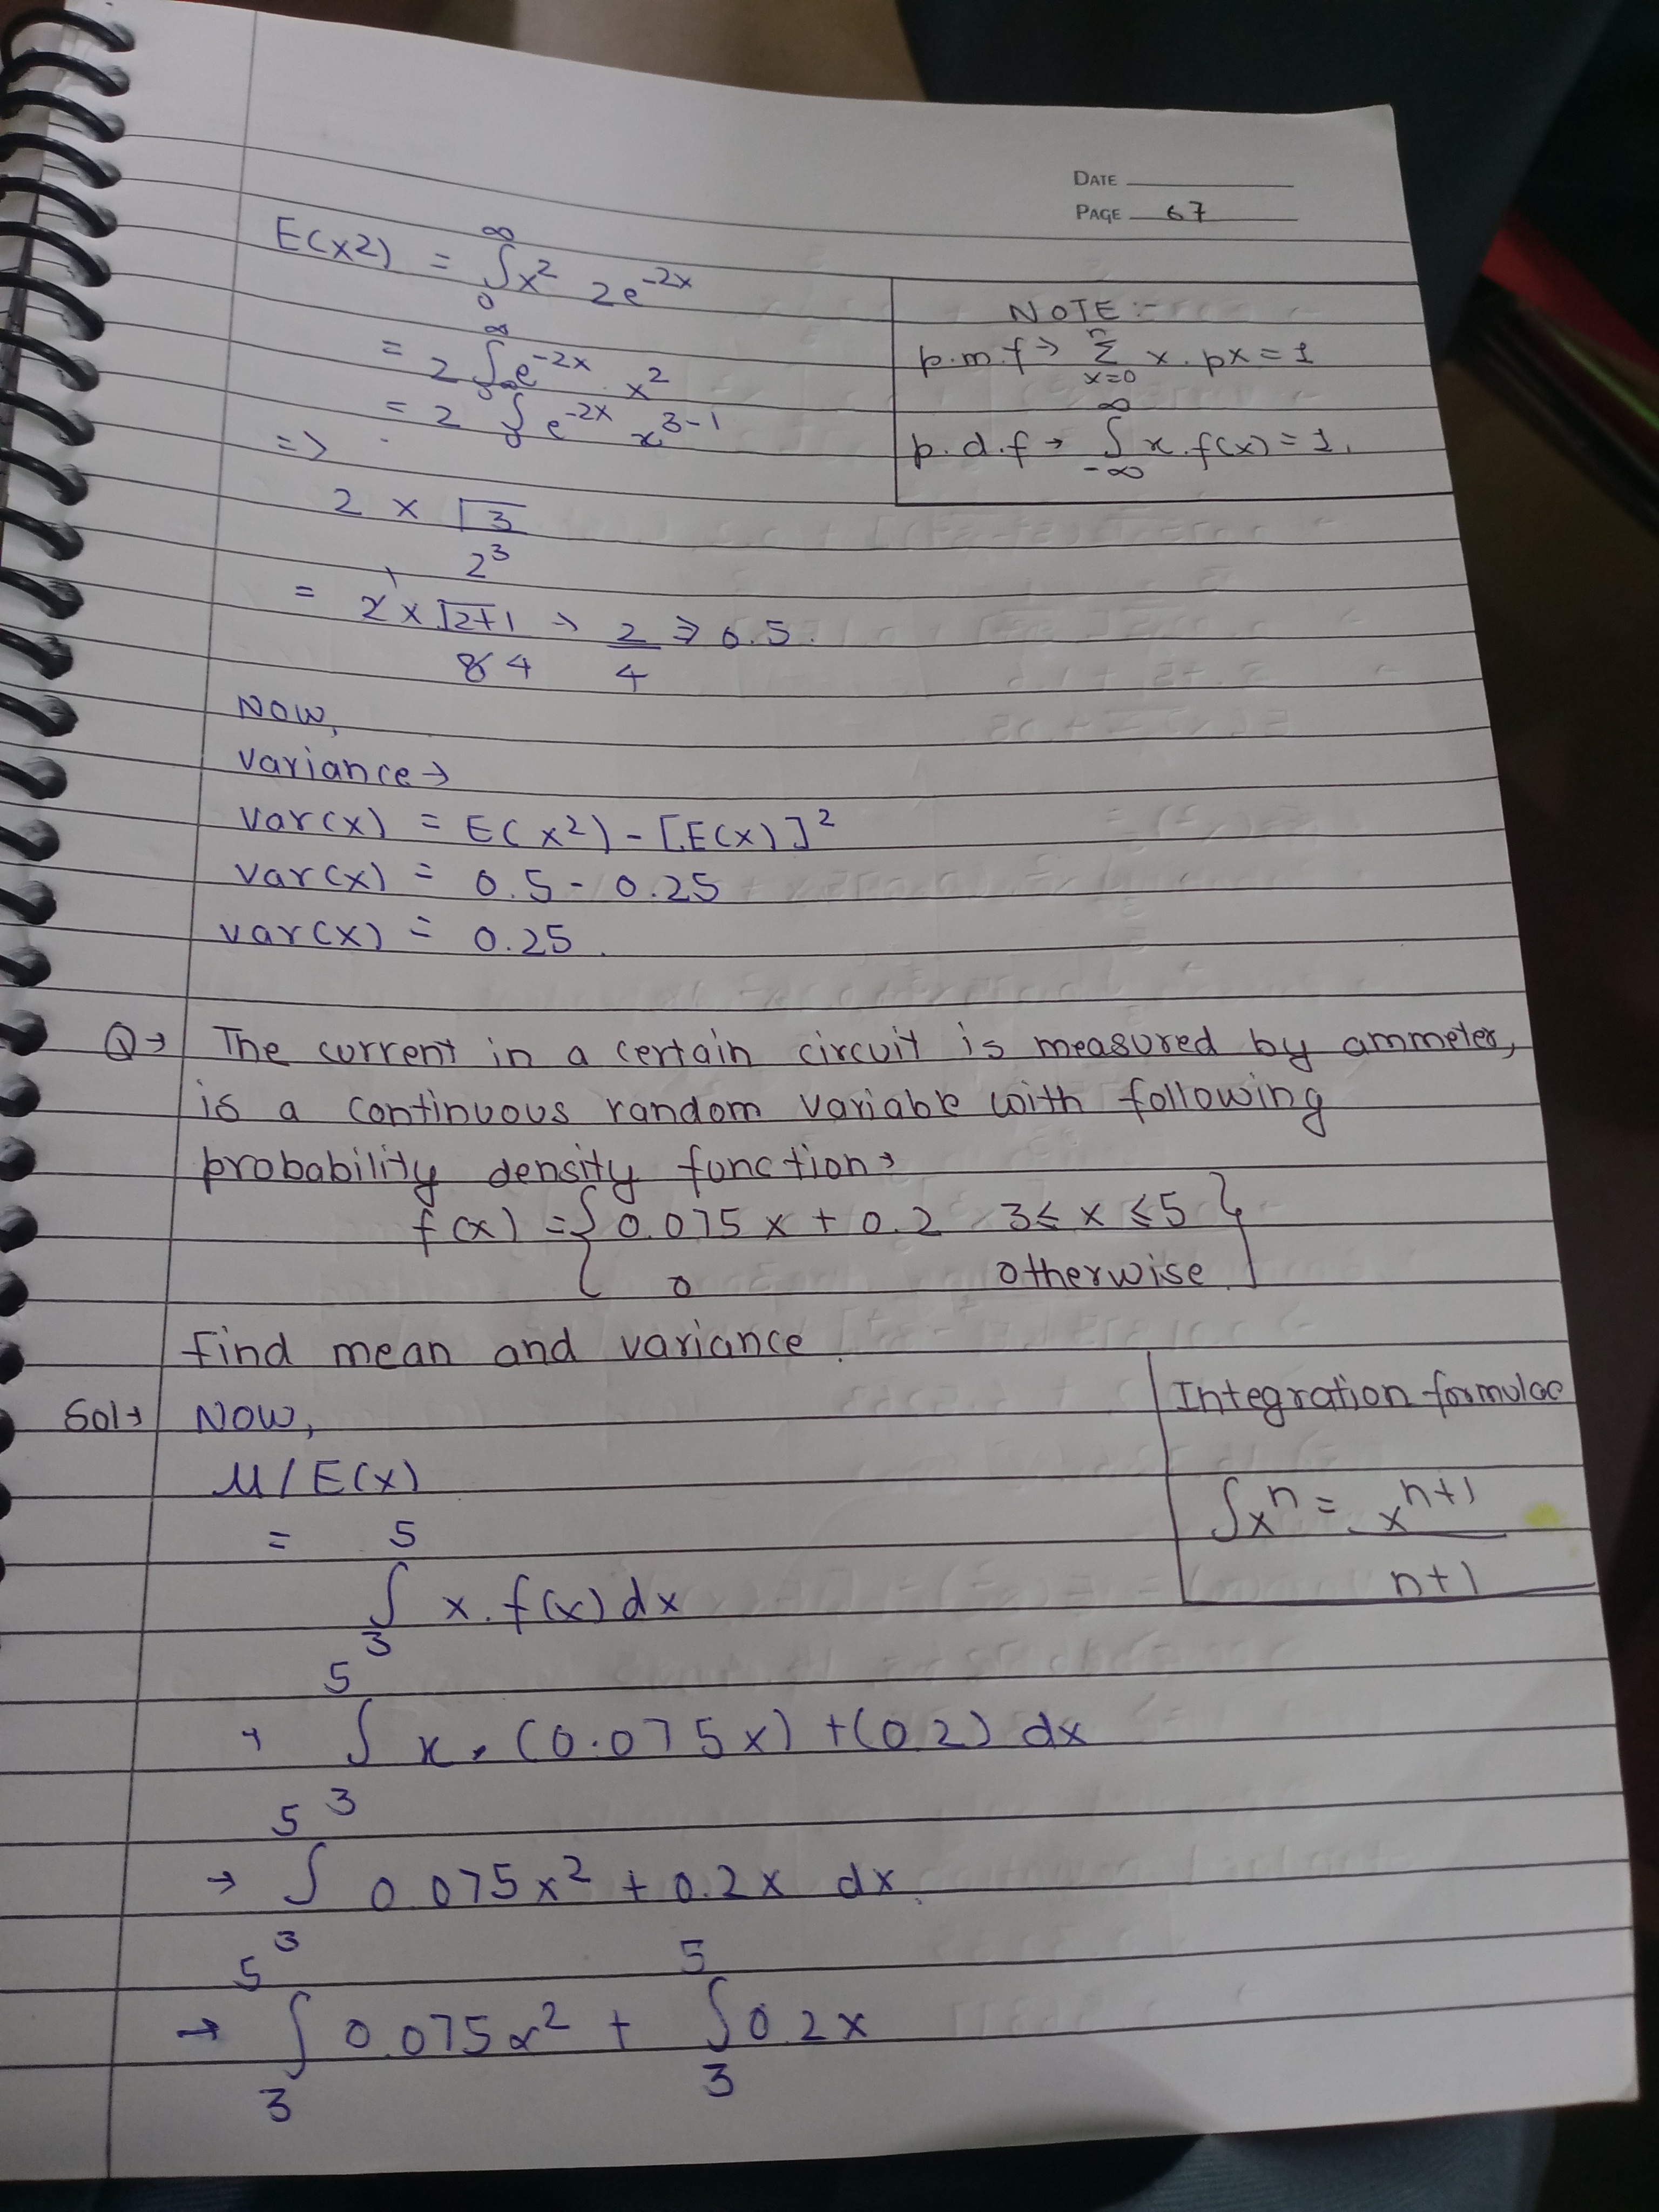 DATE
PAGE 67
E(x2) = ∞∫0 x² 2e^-2x
= 2 ∞∫0 e^-2x x²
= 2 ∫0 e^-2x x^3-1
=>
2 × Γ3
2³
= 2 × Γ2+1 → 2 ⇒ 0.5.
8 4 4
NOTE :-
p.m.f → n Σ x=0 x. px = 1
p.d.f → ∞∫-∞ x. f(x) = 1.
NOW,
variance →
var(x) = E(x²) - [E(x)]²
var(x) = 0.5 - 0.25
var(x) = 0.25.
Q→ The current in a certain circuit is measured by ammeter,
is a continuous random variable with following
probability density function→
f(x) = { 0.075x + 0.2 3≤ x ≤5 }
0 otherwise.
Find mean and variance.
Sol→ NOW,
μ/E(x)
= 5
∫ x. f(x) dx
3
5
→ ∫ x. (0.075x) + (0.2) dx
3
5
→ ∫ 0.075x² + 0.2x dx.
3
5 5
→ ∫ 0.075x² + ∫ 0.2x
3 3
Integration formulae
∫x^n = x^n+1
n+1